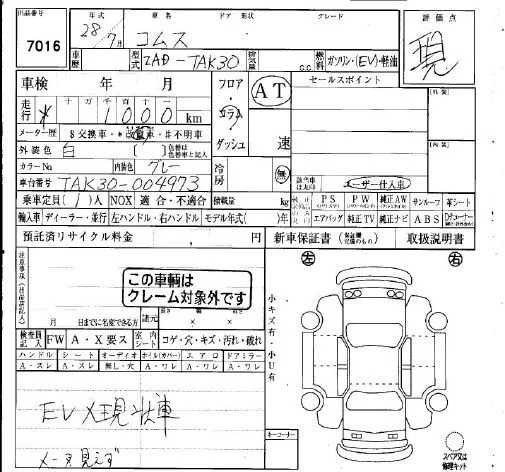 出品番号 7016
年式 28年7月 車名 コムス ドア 形状 グレード
評価点 現
車歴 型式 ZAD-TAK30 排気量 c.c. 燃料 ガソリン・EV・軽油
車検 年 月 フロア・コラム・ダッシュ AT 速 セールスポイント
走行 * 十 万 千 百 十 一 1000 km
メーター歴 $交換車・*改ざん車・#不明車
外装色 白 色替は色替車と記入
カラーNo 内装色 グレー 冷房 無
車台番号 TAK30-004973 該当車は丸印 ユーザー仕入車
乗車定員 (1)人 NOX 適合・不適合 積載量 kg 純正 PS PW 純正AW サンルーフ 革シート
輸入車 ディーラー・並行 左ハンドル・右ハンドル モデル年式( )年 エアバッグ 純正TV 純正ナビ ABS
預託済リサイクル料金 円 新車保証書 取扱説明書
注意事項
この車輌は
クレーム対象外です
左 右
小キズ有・小U有
月 日までに名変できる方 諸元
検査員記入 FW A・X要ス 室内シート コゲ・穴・キズ・汚れ・破れ
ハンドル シート オーディオ ホイル(カバー) エアロ ドアミラー
A・スレ A・スレ 無し・穴 A・ワレ A・ワレ A・ワレ
EV×現状車
メータ見えず
キーコーナー
スペア又は修理キット